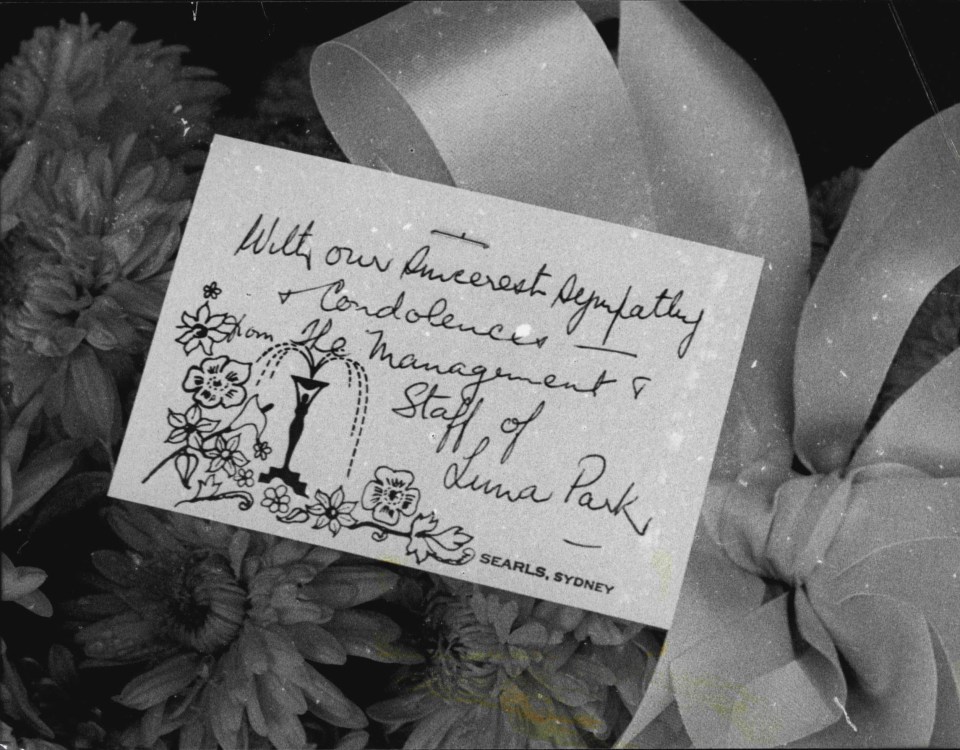 With our Sincerest Sympathy
& Condolences —
from The Management &
Staff of
Luna Park
SEARLS, SYDNEY